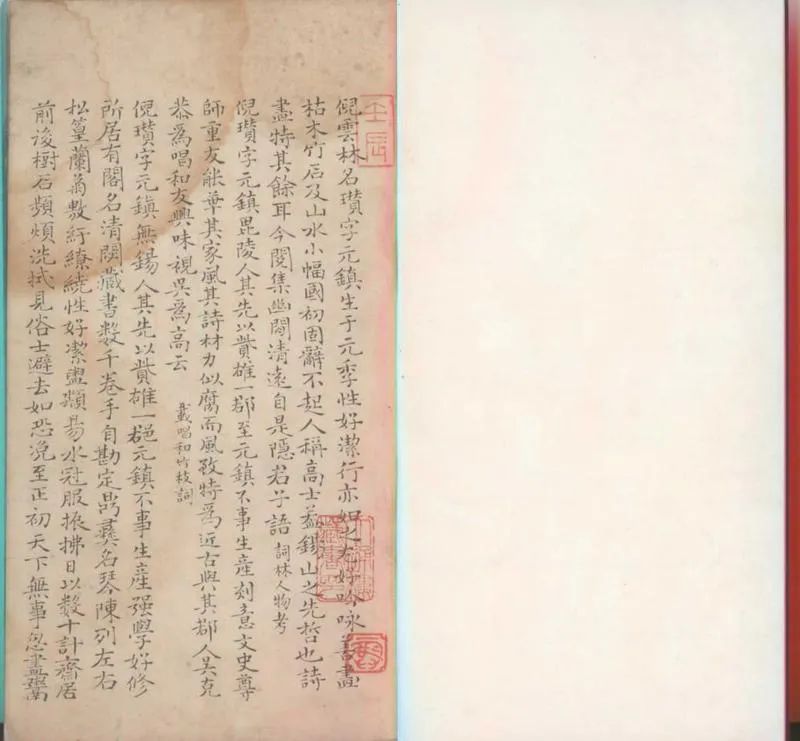 倪雲林名瓚字元鎮生于元季性好潔行亦如之尤好吟咏善畫
枯木竹石及山水小幅國初固辭不起人稱高士葢錫山之先哲也詩
畫特其餘耳今閱集幽閒清遠自是隱君子語 詞林人物考
倪瓚字元鎮毘陵人其先以貲雄一郡至元鎮不事生產刻意文史尊
師重友能華其家風其詩材力似腐而風致特爲近古與其郡人吴克
恭爲唱和友興味視吴爲高云 載唱和竹枝詞
倪瓚字元鎮無錫人其先以貲雄一郡元鎮不事生產强學好修
所居有閣名清閟藏書數千卷手自勘定鼎彞名琴陳列左右
松篁蘭菊敷紆繚繞性好潔盥頮易水冠服振拂日以數十計齋居
前後樹石頻煩洗拭見俗士避去如恐浼至正初天下無事忽盡鬻
壬辰